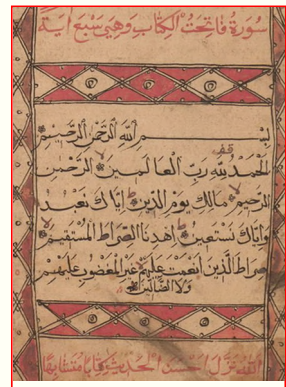 سورة فاتحت الكتاب وهي سبع اية
بسم الله الرحمن الرحيم
الحمد لله رب العالمين الرحمن
الرحيم مالك يوم الدين اياك نعبد
واياك نستعين اهدنا الصراط المستقيم
صراط الذين انعمت عليهم غير المغضوب عليهم
ولا الضالين
الله نزل احسن الحديث كتابا متشابها